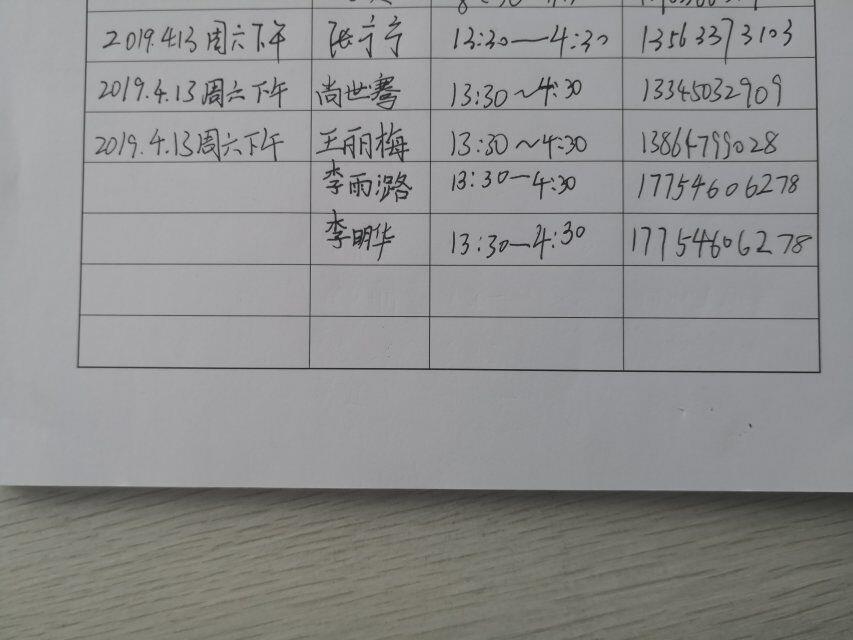 2019.4.13周六下午 张宁宁 13:30—4:30 13563373103
2019.4.13周六下午 尚世骞 13:30~4:30 13345032909
2019.4.13周六下午 王丽梅 13:30~4:30 13864799028
李雨潞 13:30—4:30 17754606278
李明华 13:30—4:30 17754606278